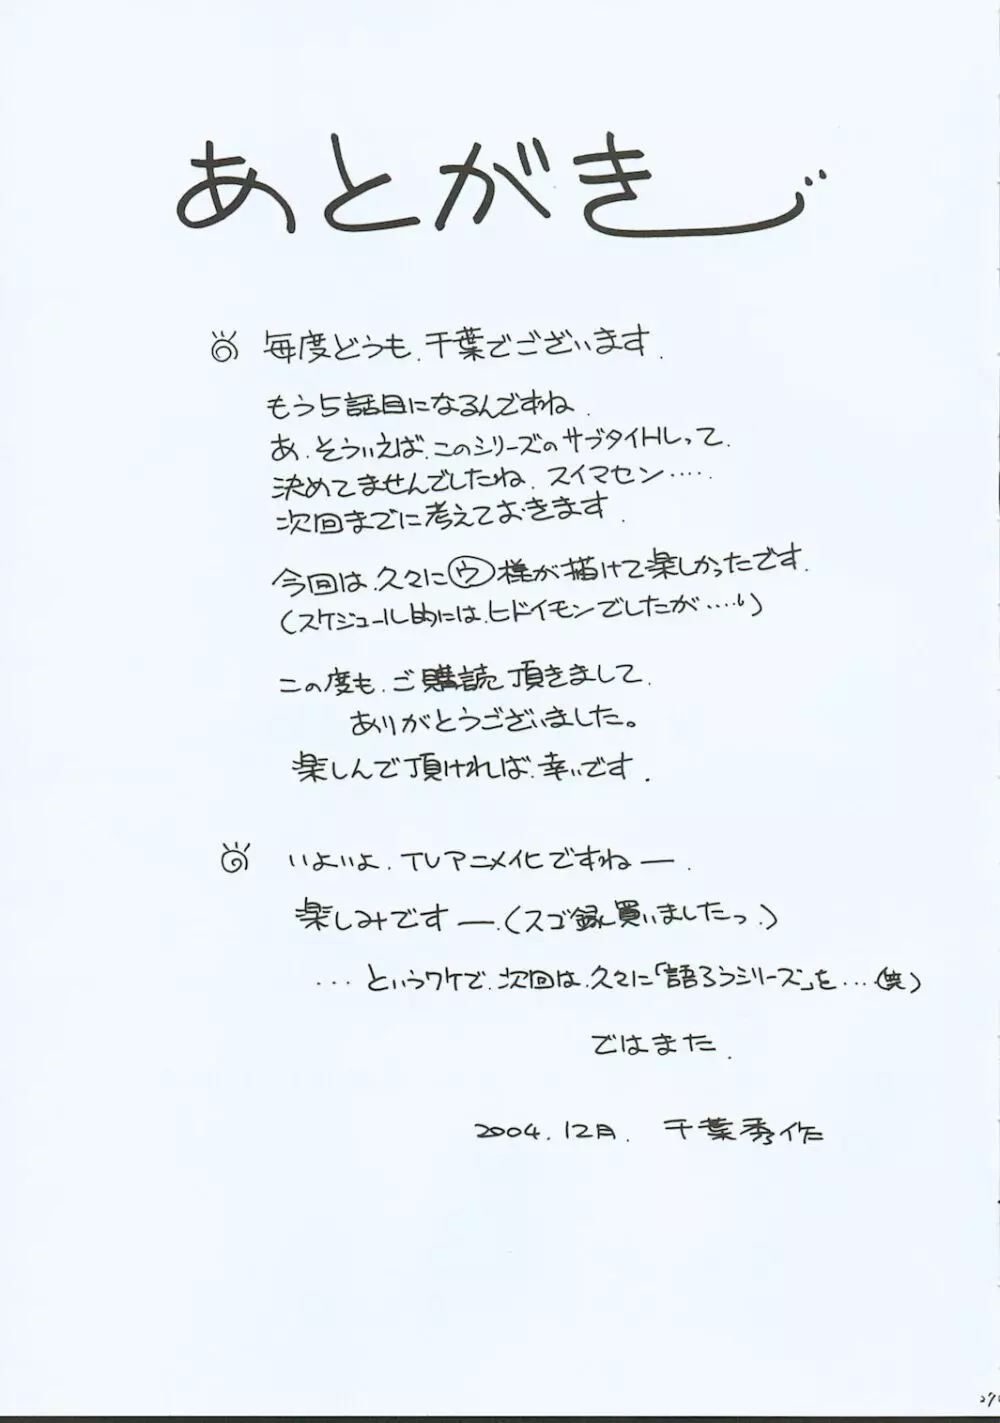 あとがき
毎度どうも、千葉でございます.
もう5話目になるんですね.
あ、そういえば、このシリーズのサブタイトルって、
決めてませんでしたね、スイマセン‥‥.
次回までに考えておきます.
今回は、久々に㋒様が描けて楽しかったです.
(スケジュール的には、ヒドイモンでしたが‥‥)
この度も、ご購読頂きまして、
ありがとうございました。
楽しんで頂ければ、幸いです.
いよいよ、TVアニメ化ですねー.
楽しみですー.(スゴ録買いましたっ.)
‥‥というワケで、次回は、久々に「語ろうシリーズ」を‥‥(笑)
ではまた.
2004.12月. 千葉秀作